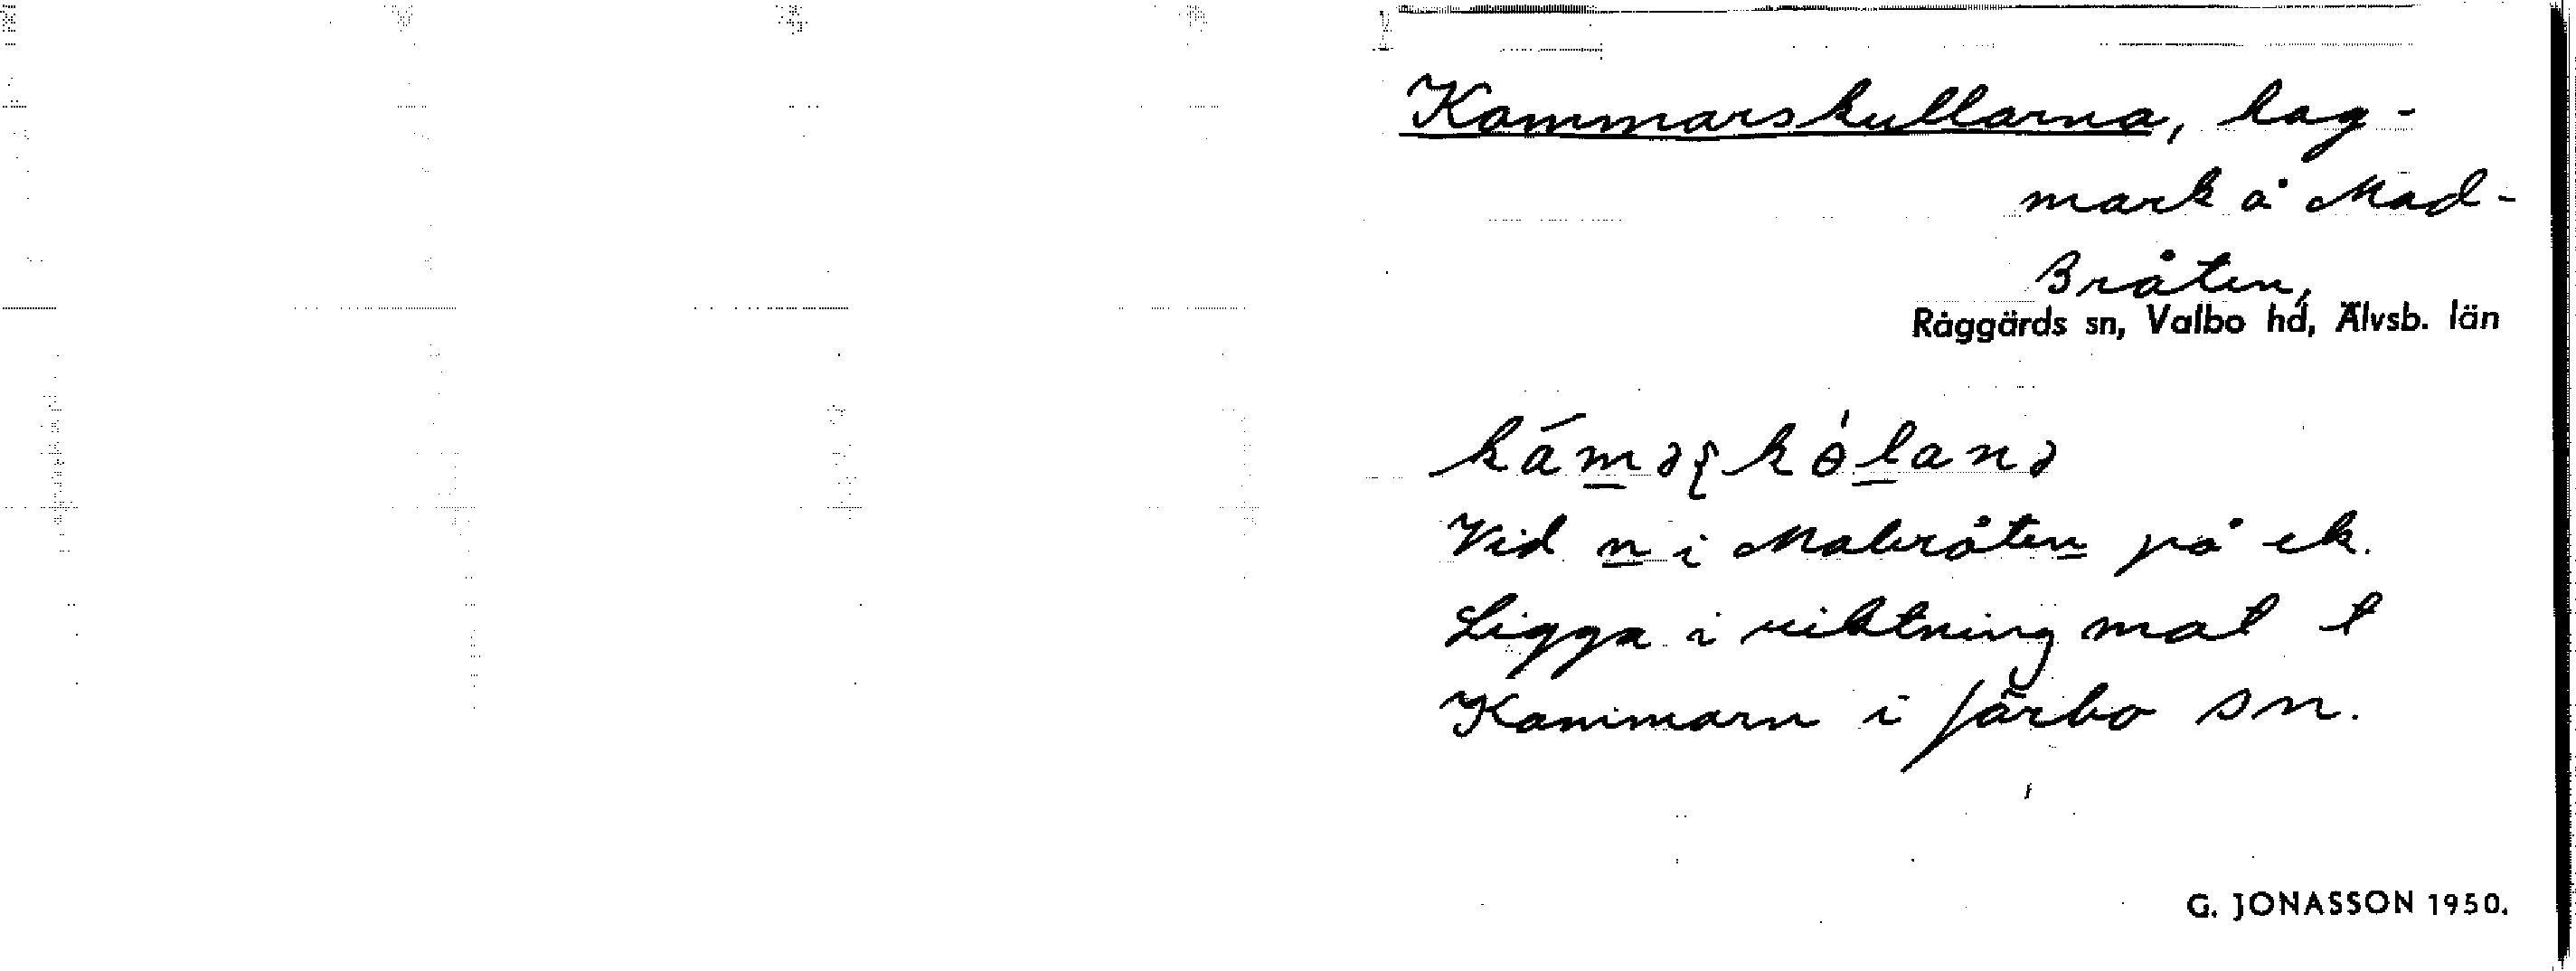 Kammarskullarna, hag-
mark å Mad-
Bråten,
Råggärds sn, Valbo hd, Älvsb. län
Vid n i Mabråten på ek.
Ligga i riktning mot t
Kammarn i Järbo sn.
G. JONASSON 1950.